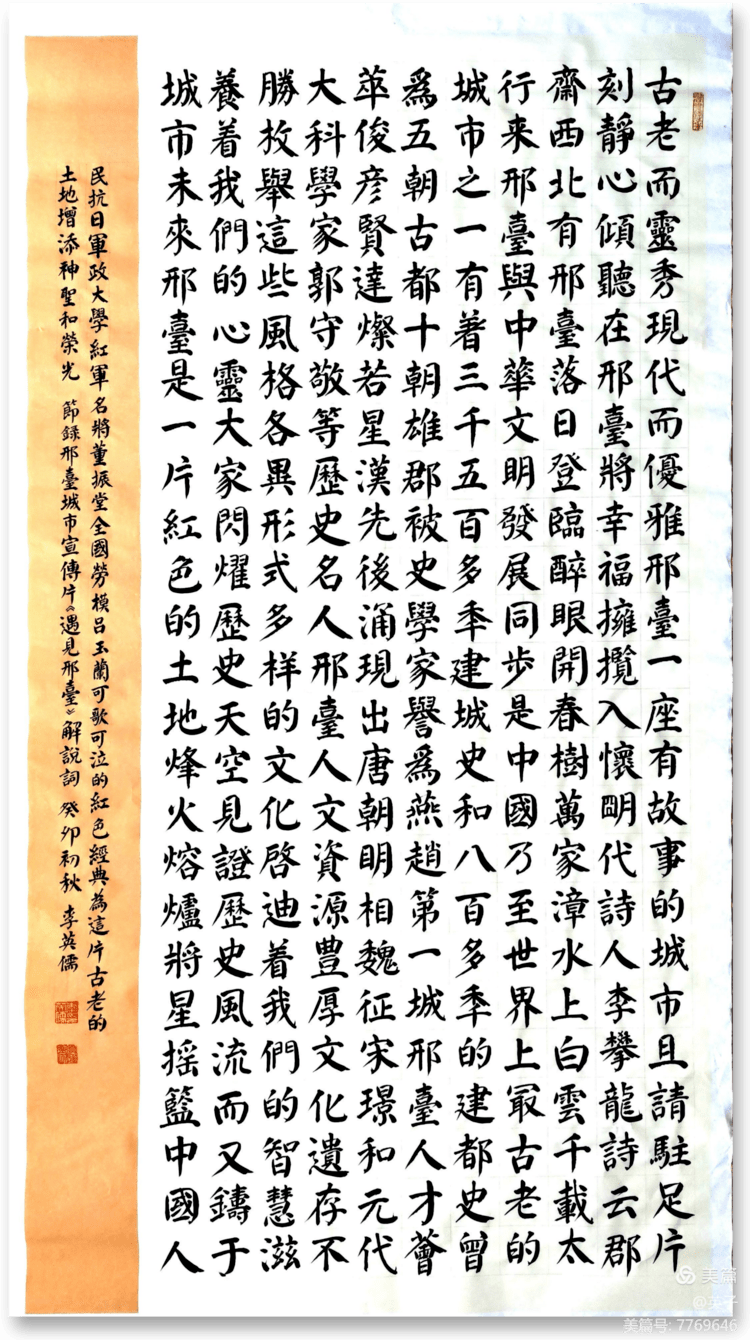 古老而靈秀現代而優雅邢臺一座有故事的城市且請駐足片
刻靜心傾聽在邢臺將幸福擁攬入懷明代詩人李攀龍詩云郡
齋西北有邢臺落日登臨醉眼開春樹萬家漳水上白雲千載太
行来邢臺與中華文明發展同步是中國乃至世界上最古老的
城市之一有着三千五百多年建城史和八百多年的建都史曾
爲五朝古都十朝雄郡被史學家譽爲燕趙第一城邢臺人才薈
萃俊彥賢達燦若星漢先後涌現出唐朝明相魏征宋璟和元代
大科學家郭守敬等歷史名人邢臺人文資源豊厚文化遺存不
勝枚舉這些風格各異形式多样的文化啓迪着我們的智慧滋
養着我們的心靈大家閃耀歷史天空見證歷史風流而又鑄于
城市未來邢臺是一片紅色的土地烽火熔爐將星搖籃中國人
民抗日軍政大學紅軍名將董振堂全國勞模吕玉蘭可歌可泣的紅色經典為這片古老的
土地增添神聖和榮光 節録邢臺城市宣傳片《遇見邢臺》解說詞 癸卯初秋 李英儒
美篇
美篇号: 7769646